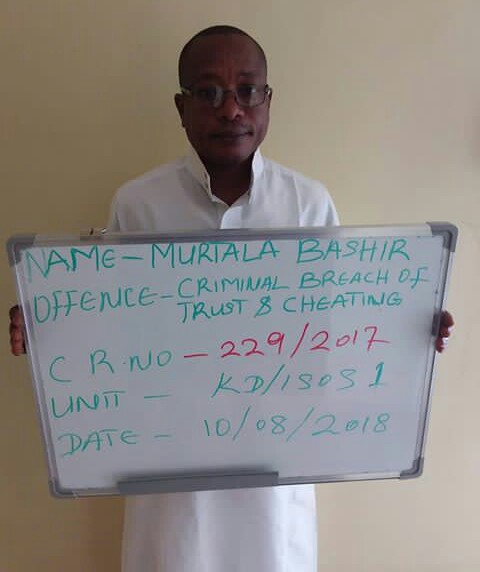 NAME - MURTALA BASHIR
OFFENCE - CRIMINAL BREACH OF
TRUST & CHEATING
C R.NO - 229/2017
UNIT - KD/ISOS 1
DATE - 10/08/2018